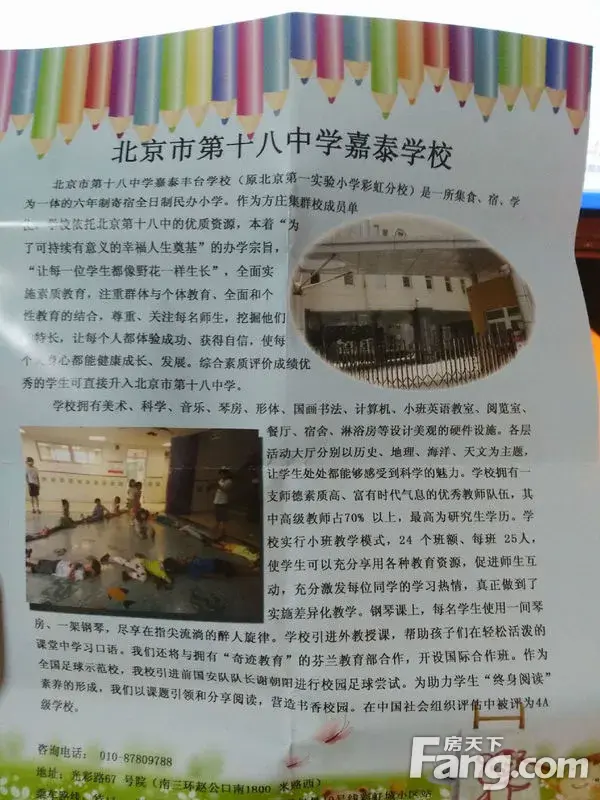 北京市第十八中学嘉泰学校
北京市第十八中学嘉泰丰台学校（原北京第一实验小学彩虹分校）是一所集食、宿、学
为一体的六年制寄宿全日制民办小学。作为方庄集群校成员单
学校依托北京第十八中的优质资源，本着“为
了可持续有意义的幸福人生奠基”的办学宗旨，
“让每一位学生都像野花一样生长”，全面实
施素质教育，注重群体与个体教育、全面和个
性教育的结合，尊重、关注每名师生，挖掘他们
特长，让每个人都体验成功、获得自信，使每
个 身心都能健康成长、发展。综合素质评价成绩优
秀的学生可直接升入北京市第十八中学。
学校拥有美术、科学、音乐、琴房、形体、国画书法、计算机、小班英语教室、阅览室、
餐厅、宿舍、淋浴房等设计美观的硬件设施。各层
活动大厅分别以历史、地理、海洋、天文为主题，
让学生处处都能够感受到科学的魅力。学校拥有一
支师德素质高、富有时代气息的优秀教师队伍，其
中高级教师占70% 以上，最高为研究生学历。学
校实行小班教学模式，24 个班额、每班 25人，
使学生可以充分享用各种教育资源，促进师生互
动，充分激发每位同学的学习热情，真正做到了
实施差异化教学。钢琴课上，每名学生使用一间琴
房、一架钢琴，尽享在指尖流淌的醉人旋律。学校引进外教授课，帮助孩子们在轻松活泼的
课堂中学习口语。我们还将与拥有“奇迹教育”的芬兰教育部合作，开设国际合作班。作为
全国足球示范校，我校引进前国安队队长谢朝阳进行校园足球尝试。为助力学生“终身阅读”
素养的形成，我们以课题引领和分享阅读，营造书香校园。在中国社会组织评估中被评为4A
级学校。
咨询电话： 010-87809788
地址：光彩路67 号院（南三环赵公口南1800 米路西）
乘车路线：
号线彩虹城小区站
房天下
Fang.com